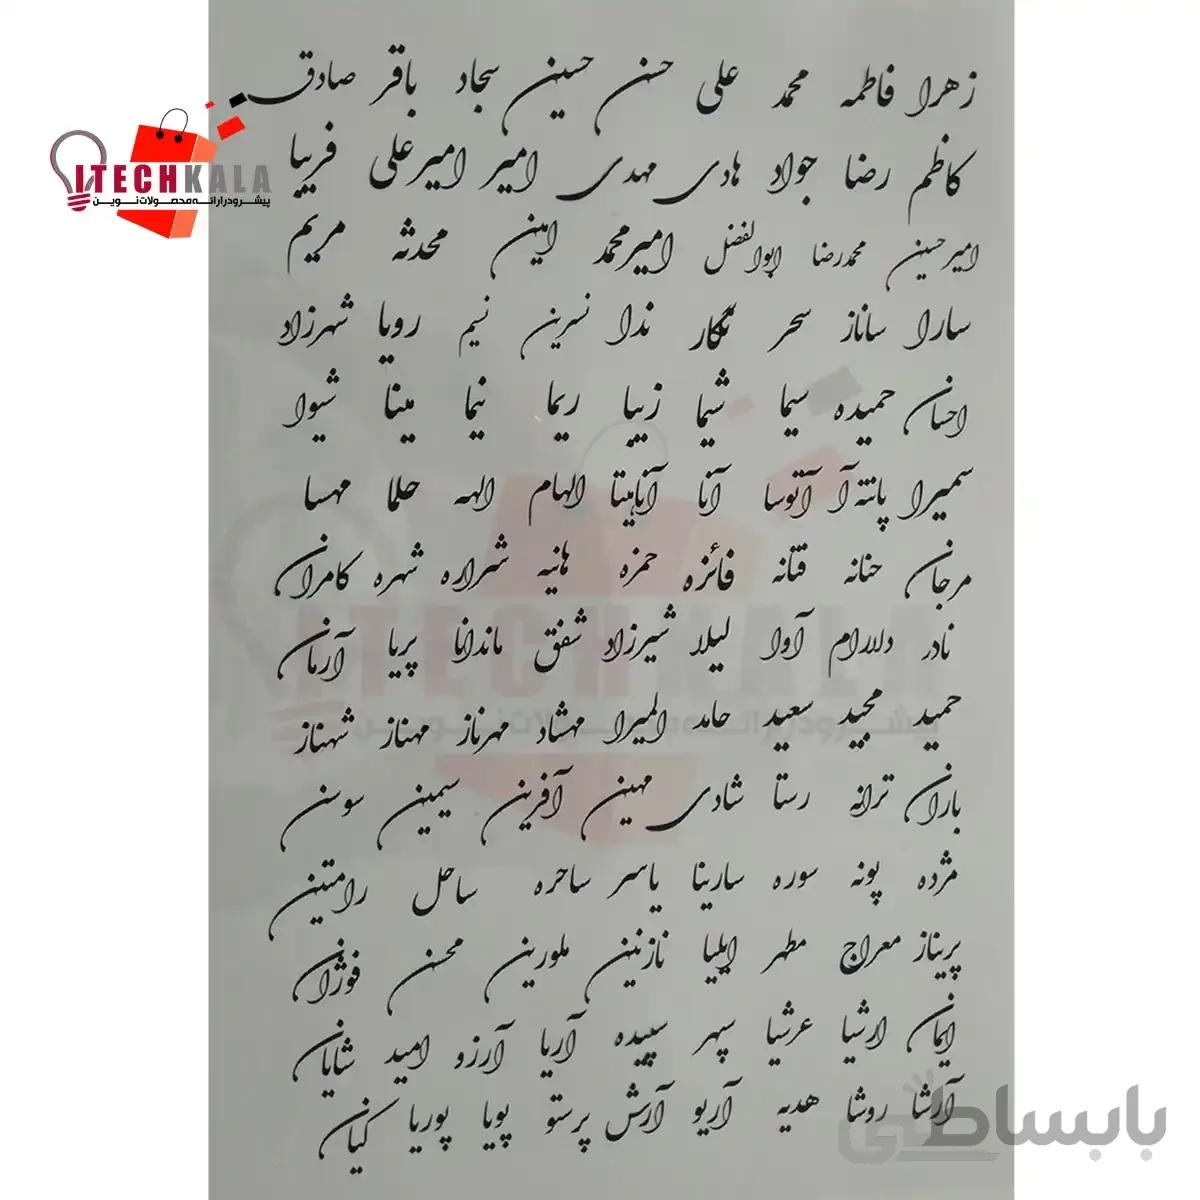 زهرا فاطمه محمد علی حسن حسین سجاد باقر صادق
کاظم رضا جواد هادی مهدی امیر امیرعلی فریبا
امیرحسین محمدرضا ابوالفضل امیرمحمد امین محدثه مریم
سارا ساناز سحر نگار ندا نسرین نسیم رویا شهرزاد
احسان حمیده سیما شیما زیبا ریما نیما مینا شیوا
سمیرا پانته آ آتوسا آنا آناهیتا الهام الهه حلما مهسا
مرجان حنانه فتانه فائزه حمزه هانیه شراره شهره کامران
نادر دلارام آوا لیلا شیرزاد شفق ماندانا پریا آرمان
حمید مجید سعید حامد المیرا مهشاد مهرناز مهناز شهناز
باران ترانه رستا شادی مهین آفرین سیمین سوسن
مژده پونه سوره سارینا یاسر ساحره ساحل رامتین
پریناز معراج مطهر ایلیا نازنین ملورین محسن فوژان
ایمان ارشیا عرشیا سپهر سپیده آریا آرزو امید شایان
آرشا روشا هدیه آریو آرش پرستو پویا پوریا کیان
ITECHKALA
پیشرو در ارائه محصولات نوین
ITECHKALA
پیشرو در ارائه محصولات نوین
باباساطی